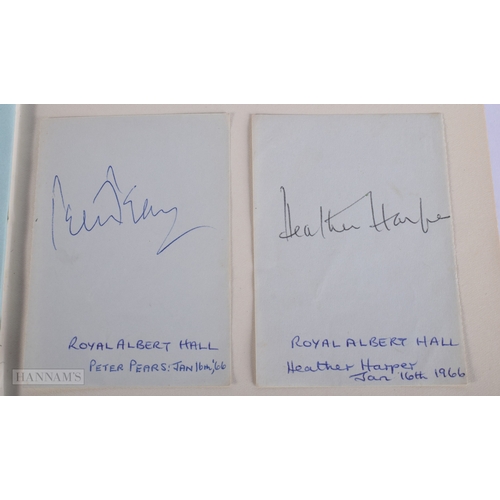 Peter Pears
ROYAL ALBERT HALL
PETER PEARS: JAN 16th, '66
Heather Harper
ROYAL ALBERT HALL
Heather Harper
Jan 16th 1966
HANNAM'S